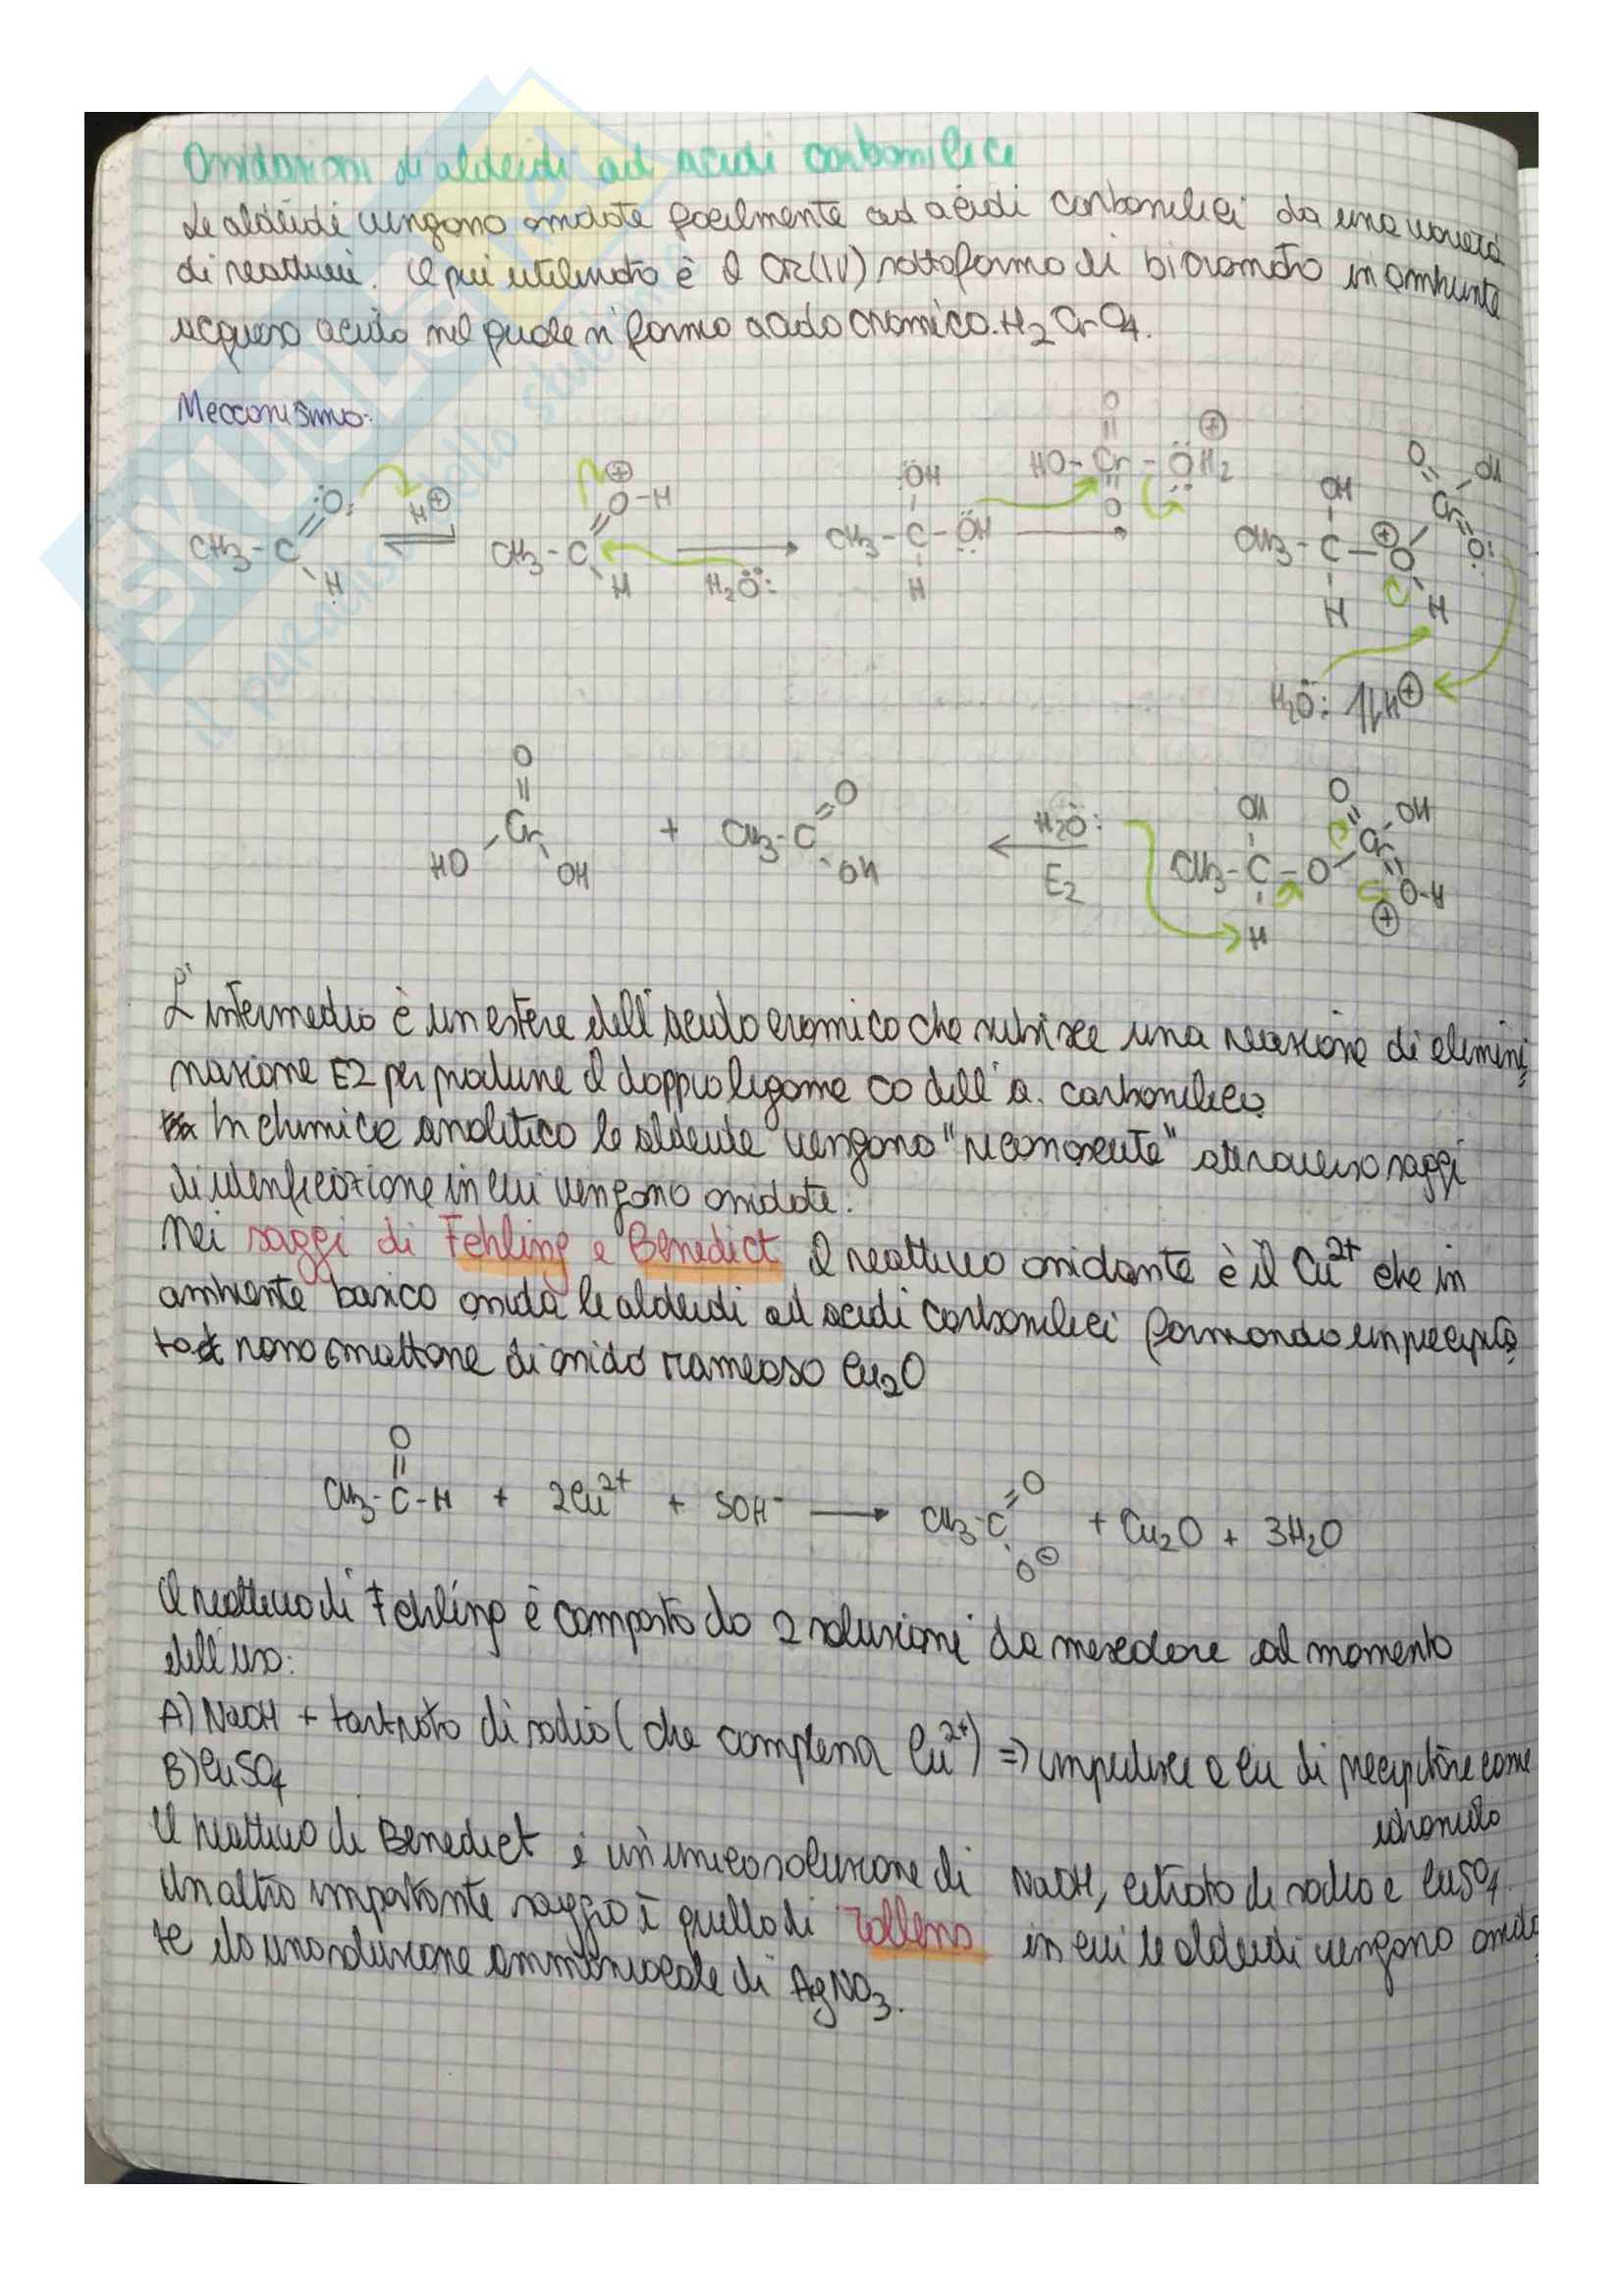 Ossidazioni di aldeidi ad acidi carbossilici
Le aldeidi vengono ossidate facilmente ad acidi carbossilici da una varietà
di reattivi. Il più utilizzato è il Cr(IV) sottoforma di bicromato in ambiente
acquoso acido nel quale si forma acido cromico. H2CrO4.
Meccanismo:
O
HO-Cr-ÖH2 ⊕
O
CH3-C O: H H⊕
CH3-C O-H ⊕ H H2Ö:
CH3-C-ÖH ÖH H
CH3-C-O OH H H ⊕ O Cr OH O:
H2Ö: H⊕
O
Cr
HO OH + CH3-C O OH
H2Ö:
E2
CH3-C-O OH H O Cr OH O-H ⊕
L'intermedio è un estere dell'acido cromico che subisce una reazione di elimini
nazione E2 per produrre il doppio legame CO dell'a. carbossilico
In chimica analitica le aldeide vengono "riconosciute" attraverso saggi
di identificazione in cui vengono ossidate.
Nei saggi di Fehling e Benedict il reattivo ossidante è il Cu2+ che in
ambiente basico ossida le aldeidi ad acidi carbossilici formando un precipita
to rosso mattone di ossido rameoso Cu2O
O
CH3-C-H + 2Cu2+ + 5OH- → CH3-C O O⊖ + Cu2O + 3H2O
Il reattivo di Fehling è composto da 2 soluzioni da mescolare al momento
dell'uso:
A) NaOH + tartrato di sodio (che complessa Cu2+) ⇒ impedisce a Cu di precipitare come
idrossido
B) CuSO4
Il reattivo di Benedict è un'unica soluzione di NaOH, citrato di sodio e CuSO4.
Un altro importante saggio è quello di Tollens in cui le aldeidi vengono ossida
te da una soluzione ammoniacale di AgNO3.